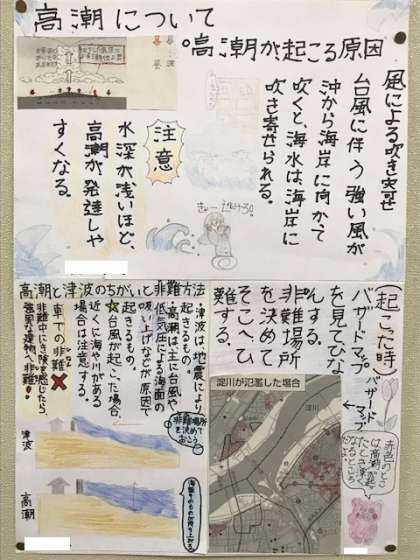 高潮について
。高潮が起こる原因
風による吹き寄せ
台風に伴う強い風が
沖から海岸に向かて
吹くと、海水は海岸に
吹き寄せられる。
注意
水深が浅いほど、
高潮が発達しや
すくなる。
高潮と津波のちがいと非難方法
・津波は、地震により
起きるもの。
・高潮は、主に台風や
低気圧による海面の
吸い上げなどが原因で
起きるもの。
☆台風が起こった場合、
近くに海や川がある
場合は注意する。
車での非難
非難中にき険を感じたら、
強固な建物へ非難!
非難場所
を決めて
おこう
津波
高潮
(起こった時)
バザードマップ
を見てひな
んする。
非難場所
を決めて
そこへひ
難する。
バザード
マップ
淀川が氾濫した場合
淀川
赤色のところ
は高潮が